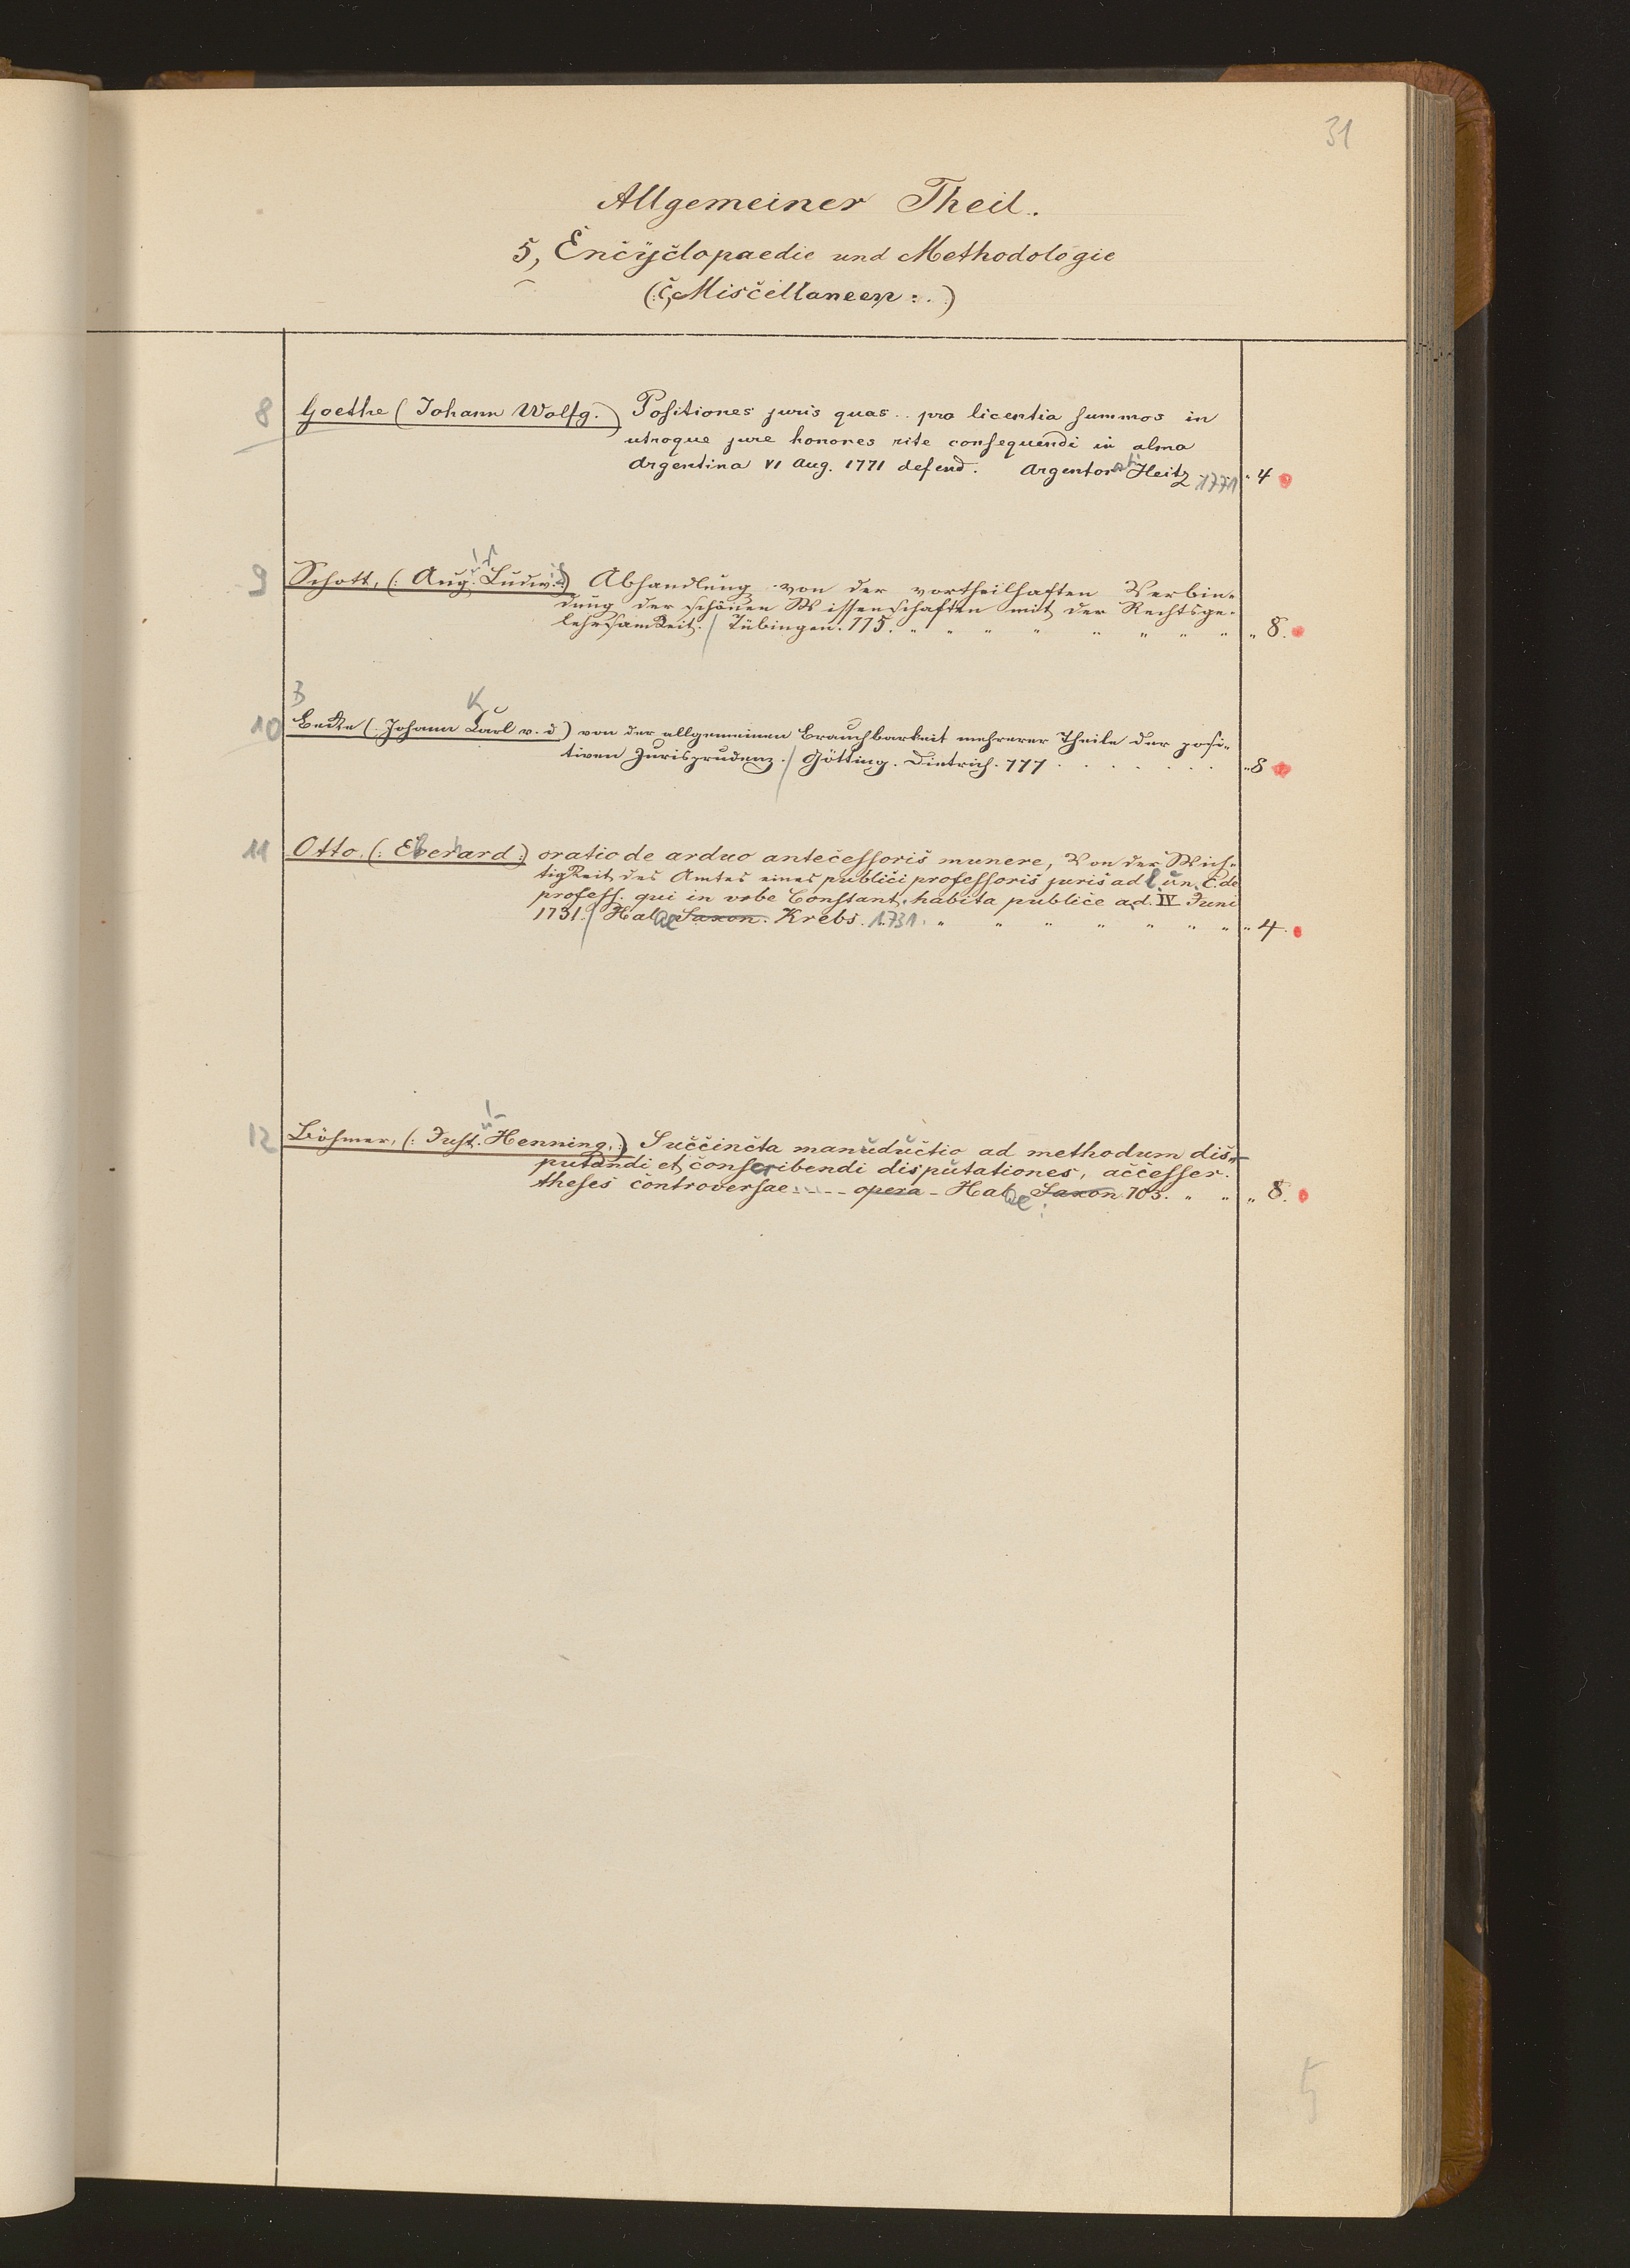 31
Allgemeiner Theil.
5, Encyclopaedie und Methodologie
(: c, Miscellaneen :)
8 Goethe (Johann Wolfg.) Positiones juris quas .. pro licentia summos in
utroque jure honores rite consequendi in alma
Argentina VI Aug. 1771 defend. Argentorati Heitz 1771 " 4
9 Schott, (: Aug. Ludw. :) Abhandlung von der vortheilhaften Verbin-
dung der schönen Wissenschaften mit der Rechtsge-
lehrsamkeit. / Tübingen. 775. " " " " " " " " " 8.
10 Becke (: Johann Karl v. d) von der allgemeinen Brauchbarkeit mehrerer Theile der posi-
tiven Jurisprudenz. / Götting. Dietrich. 777 . . . . . . . " 8
11 Otto, (: Everhard :) oratio de arduo antecessoris munere, Von der Wich-
tigkeit des Amtes eines publici professoris juris ad l. un. C. de
profess. qui in urbe Constant. habita publice ad. IV Juni
1731. / Halae Saxon. Krebs. 1731. " " " " " " " " 4.
12 Böhmer, (: Just. Henning. :) Succincta manuductio ad methodum dis-
putandi et conscribendi disputationes, accesser.
theses controversae .... opera - Halae Saxon 703. " " " 8.
5